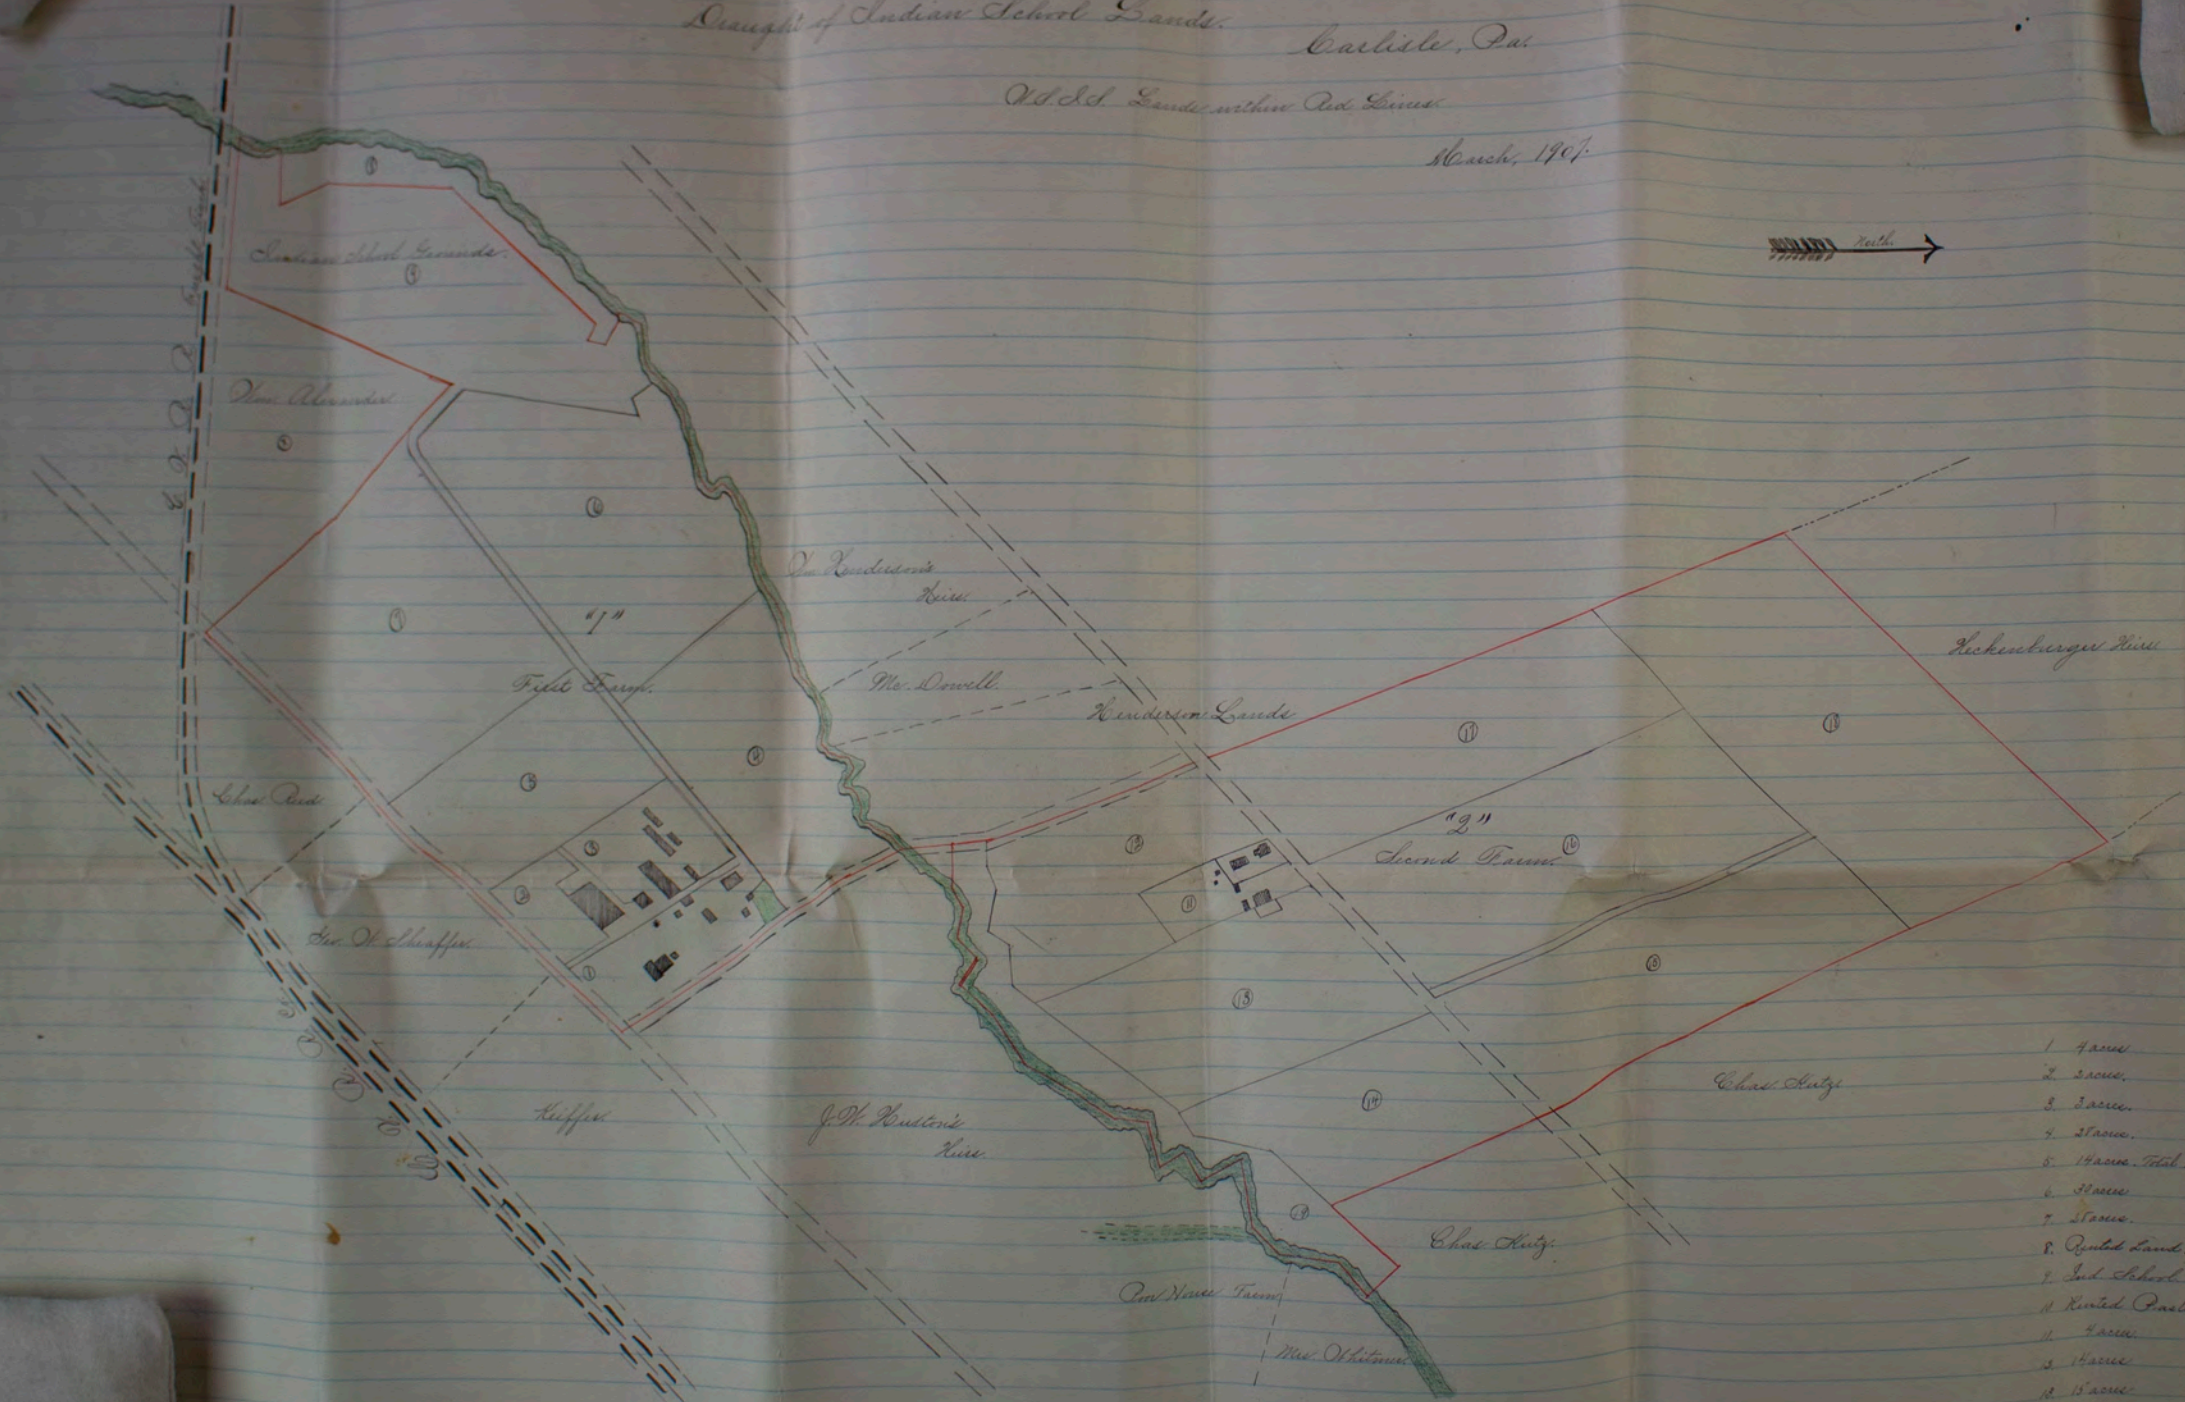 Draught of Indian School Lands.
Carlisle, Pa.
U.S.I.S. Lands within Red Lines.
March, 1907.
North.
Indian School Grounds.
9
Wm. Alexander
6
7
"1"
First Farm.
Wm Henderson's
Heirs.
Mc. Dowell.
Henderson Lands
Heckenburger Heirs
17
18
Chas Reid
4
3
2
1
12
11
"2"
Second Farm.
16
15
13
14
Geo. W. Sheaffer.
C. V. R. R.
Keiffer.
J. W. Huston's
Heirs.
Chas Kutz
Chas Kutz.
19
Poor House Farm
Mrs Whitmer
1 4 acres
2. 2 acres.
3. 3 acres.
4. 28 acres.
5. 14 acres. Total
6. 30 acres
7. 25 acres.
8. Rented Land
9. Ind School
10 Rented Past
11. 4 acres
14 acres
15 acres